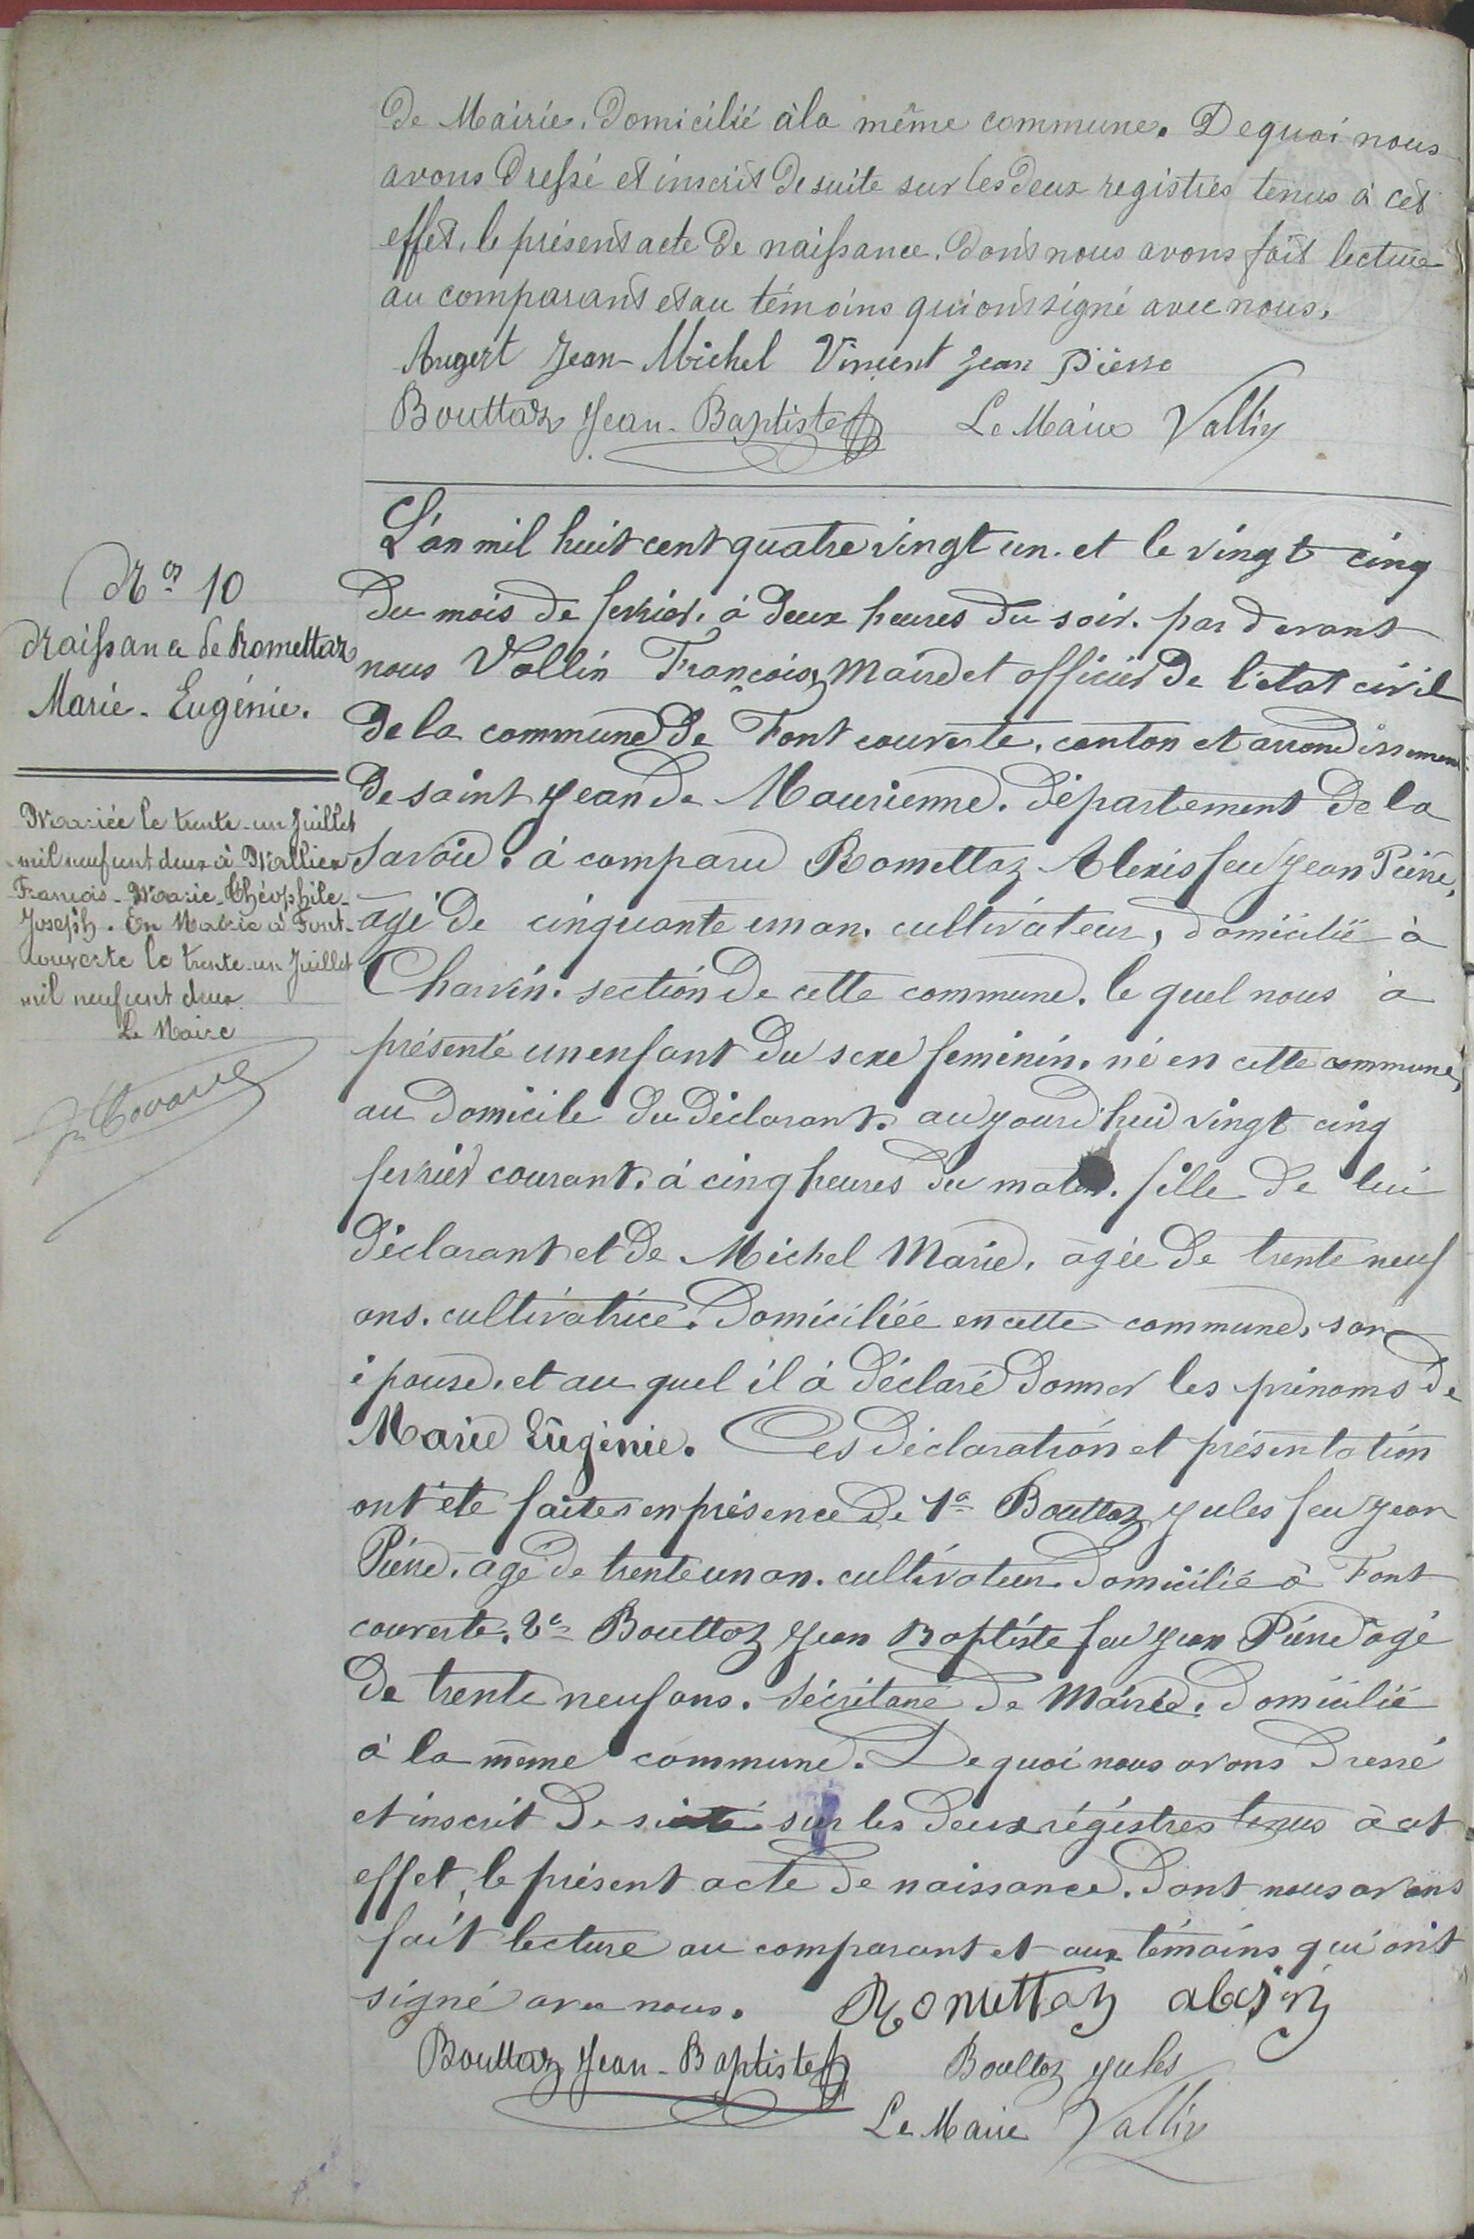 de Mairie, domicilié à la même commune. De quoi nous
avons dressé et inscrit de suite sur les deux registres tenus à cet
effet, le présent acte de naissance, dont nous avons fait lecture
au comparant et au témoins qui ont signé avec nous.
Augert Jean-Michel Vincent Jean Pierre
Bouttaz Jean-Baptiste Le Maire Vallin
L'an mil huit cent quatre vingt un. et le vingt cinq
du mois de fevrier, à deux heures du soir. par devant
nous Vallin François, Maire et officier de l'etat civil
de la commune de Font couverte, canton et arrondissement
de saint Jean de Maurienne. département de la
Savoie. à comparu Romettaz Alexis feu Jean Pierre,
agé de cinquante un an. cultivateur, domicilié à
Charvin. section de cette commune. le quel nous à
présenté un enfant du sexe feminin. né en cette commune,
au domicile du déclarant. aujourd'hui vingt cinq
fevrier courant, à cinq heures du matin. fille de lui
déclarant et de Michel Marie, agée de trente neuf
ans. cultivatrice. domiciliée en cette commune, son
épouse, et au quel il à déclaré donner les prénoms de
Marie Eugénie. Ces déclaration et présentation
ont été faites en présence de 1º Bouttaz Jules feu Jean
Pierre. agé de trente un an. cultivateur. domicilié à Font
couverte. 2º Bouttaz Jean Baptiste feu Jean Pierre agé
de trente neuf ans. Sécrétaire de Mairie. domicilié
à la même commune. De quoi nous avons dressé
et inscrit de suite sur les deux régistres tenus à cet
effet, le présent acte de naissance. dont nous avons
fait lecture au comparant et aux témoins qui ont
signé avec nous. Romettaz alexis
Bouttaz Jean-Baptiste Bouttaz Jules
Le Maire Vallin
Nº 10
Naissance de Romettaz
Marie-Eugénie.
Mariée le trente-un Juillet
mil neuf cent deux à Mallier
François-Marie-Théophile-
Joseph. En Mairie à Font-
couverte le trente-un Juillet
mil neuf cent deux
Le Maire